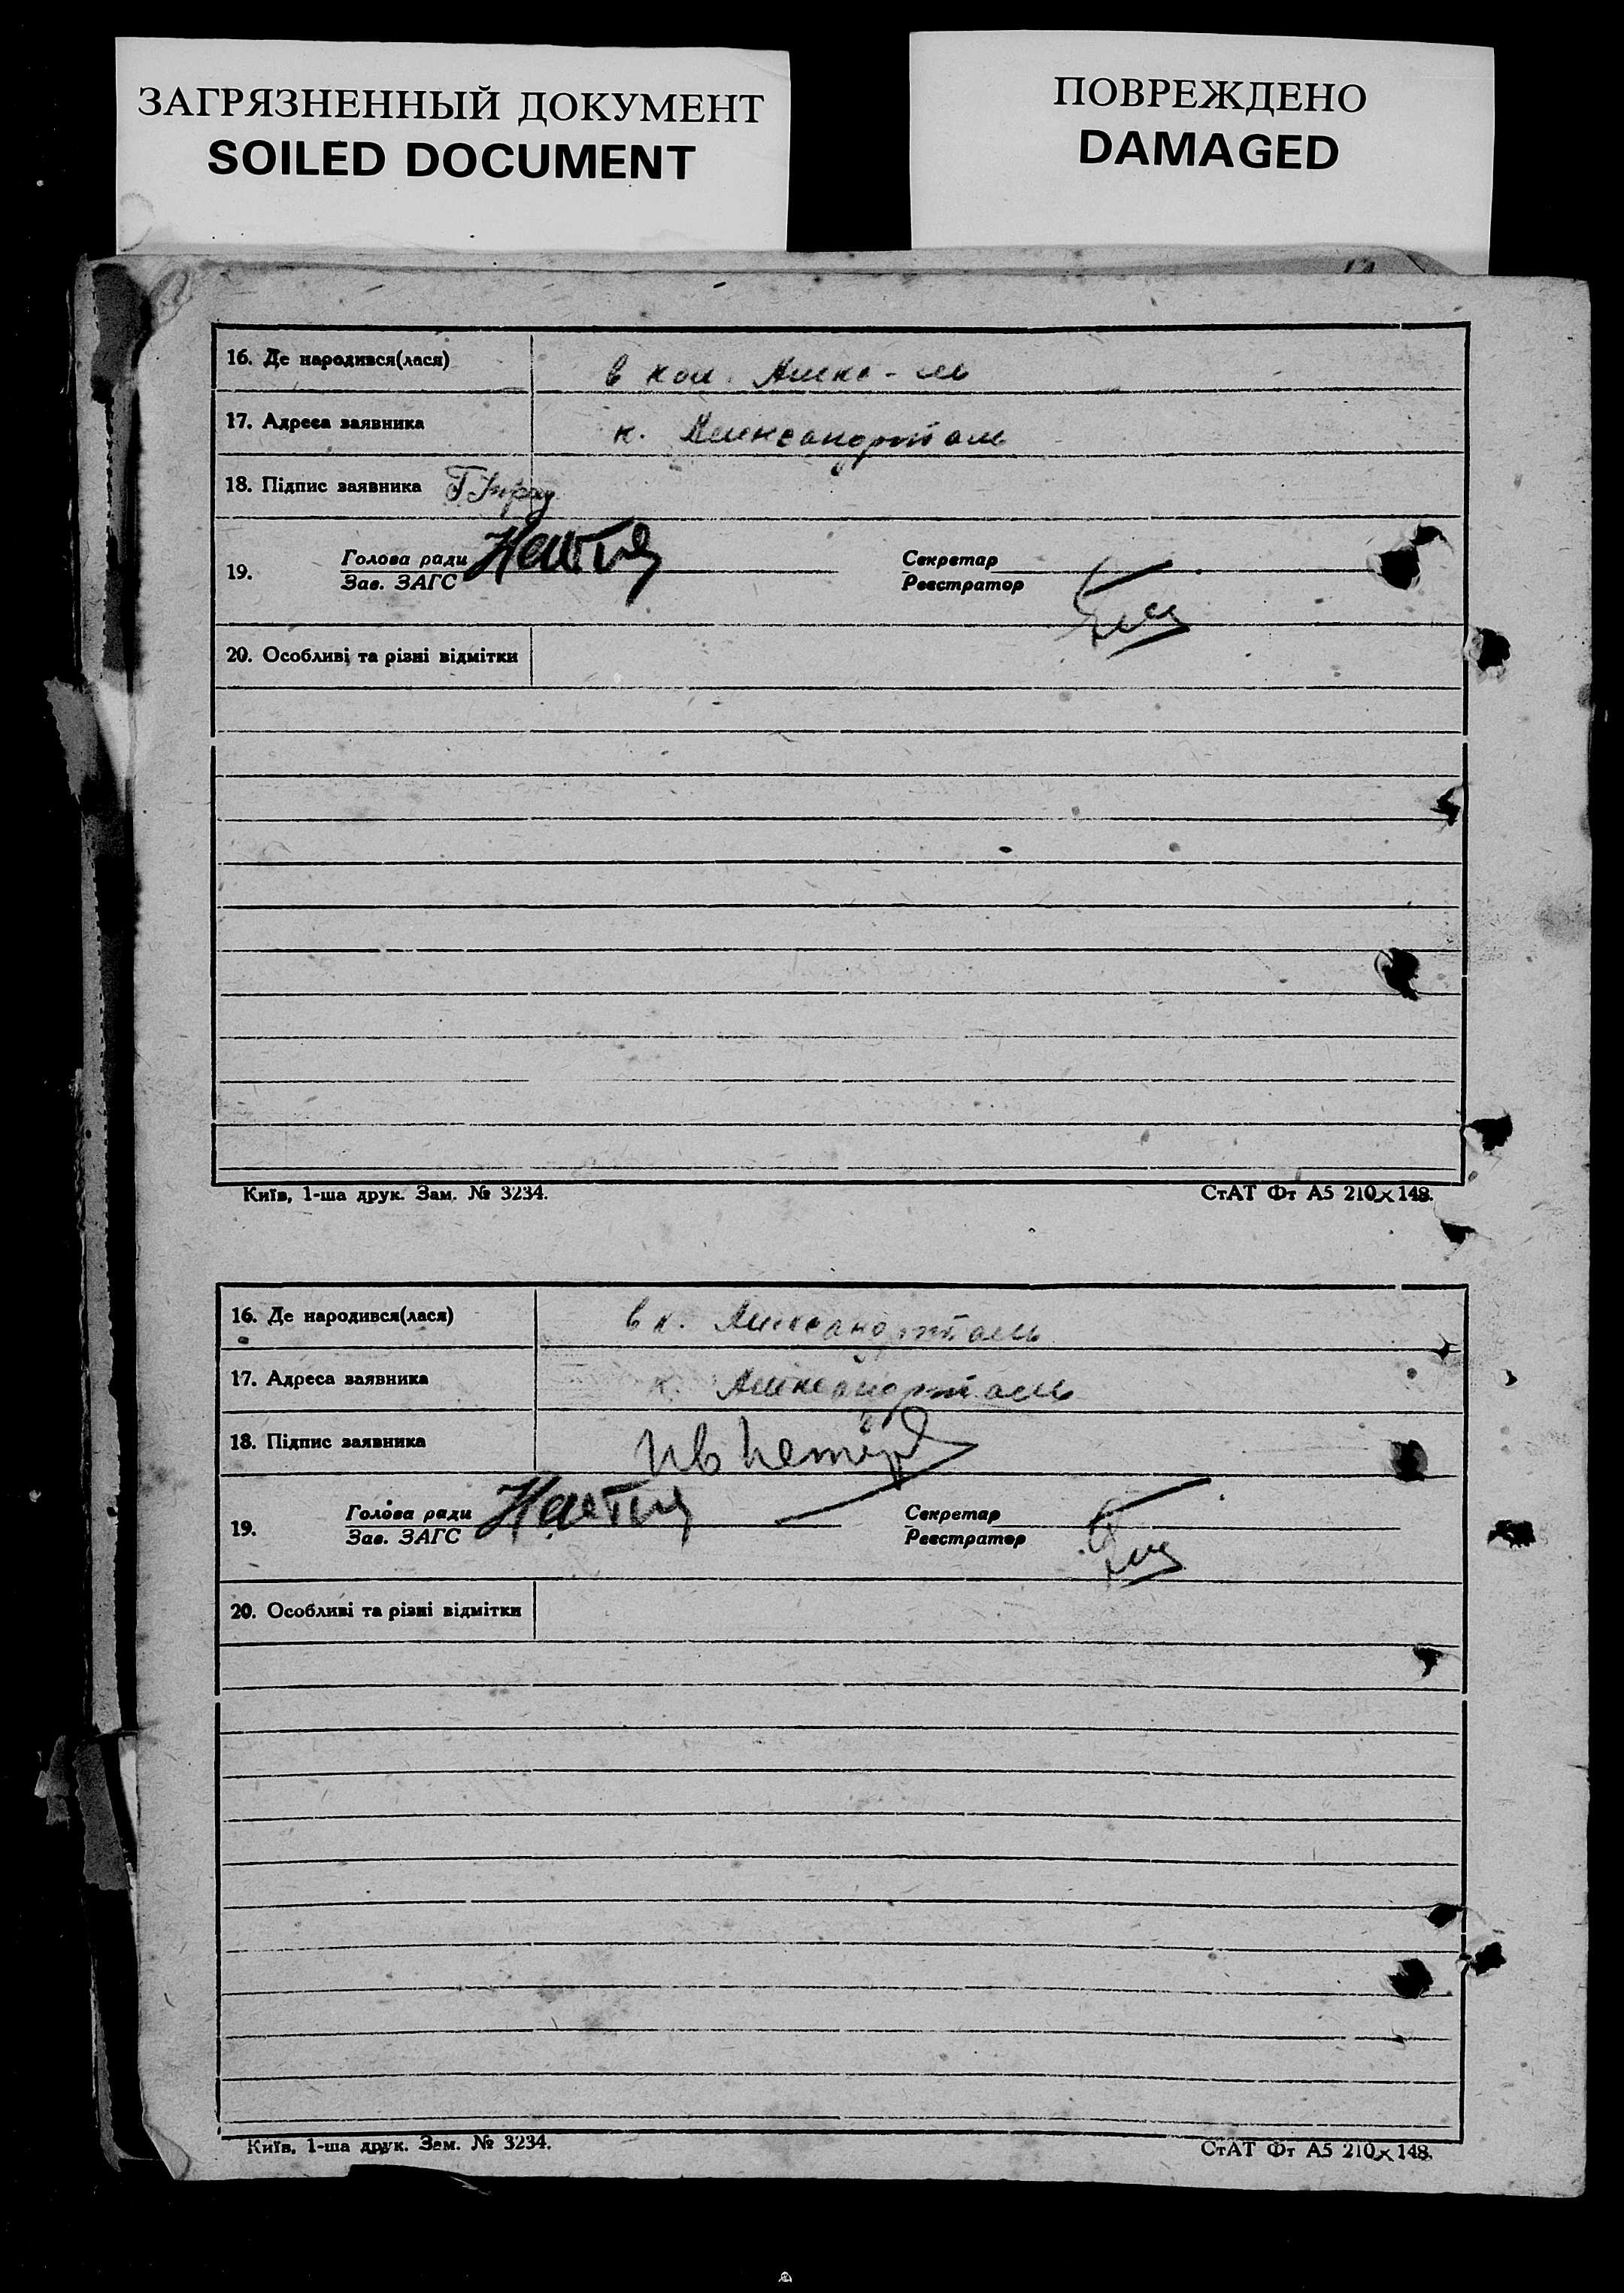 ЗАГРЯЗНЕННЫЙ ДОКУМЕНТ
SOILED DOCUMENT
ПОВРЕЖДЕНО
DAMAGED
16. Де народився(лася) в кол. Алекс-ль
17. Адреса заявника к. Александрталь
18. Підпис заявника
19. Голова ради
Зав. ЗАГС
Секретар
Реєстратор
20. Особливі та різні відмітки
Київ, 1-ша друк. Зам. № 3234.
СтАТ Фт А5 210×148.
16. Де народився(лася) в к. Александрталь
17. Адреса заявника к. Александрталь
18. Підпис заявника
19. Голова ради
Зав. ЗАГС
Секретар
Реєстратор
20. Особливі та різні відмітки
Київ, 1-ша друк. Зам. № 3234.
СтАТ Фт А5 210×148.